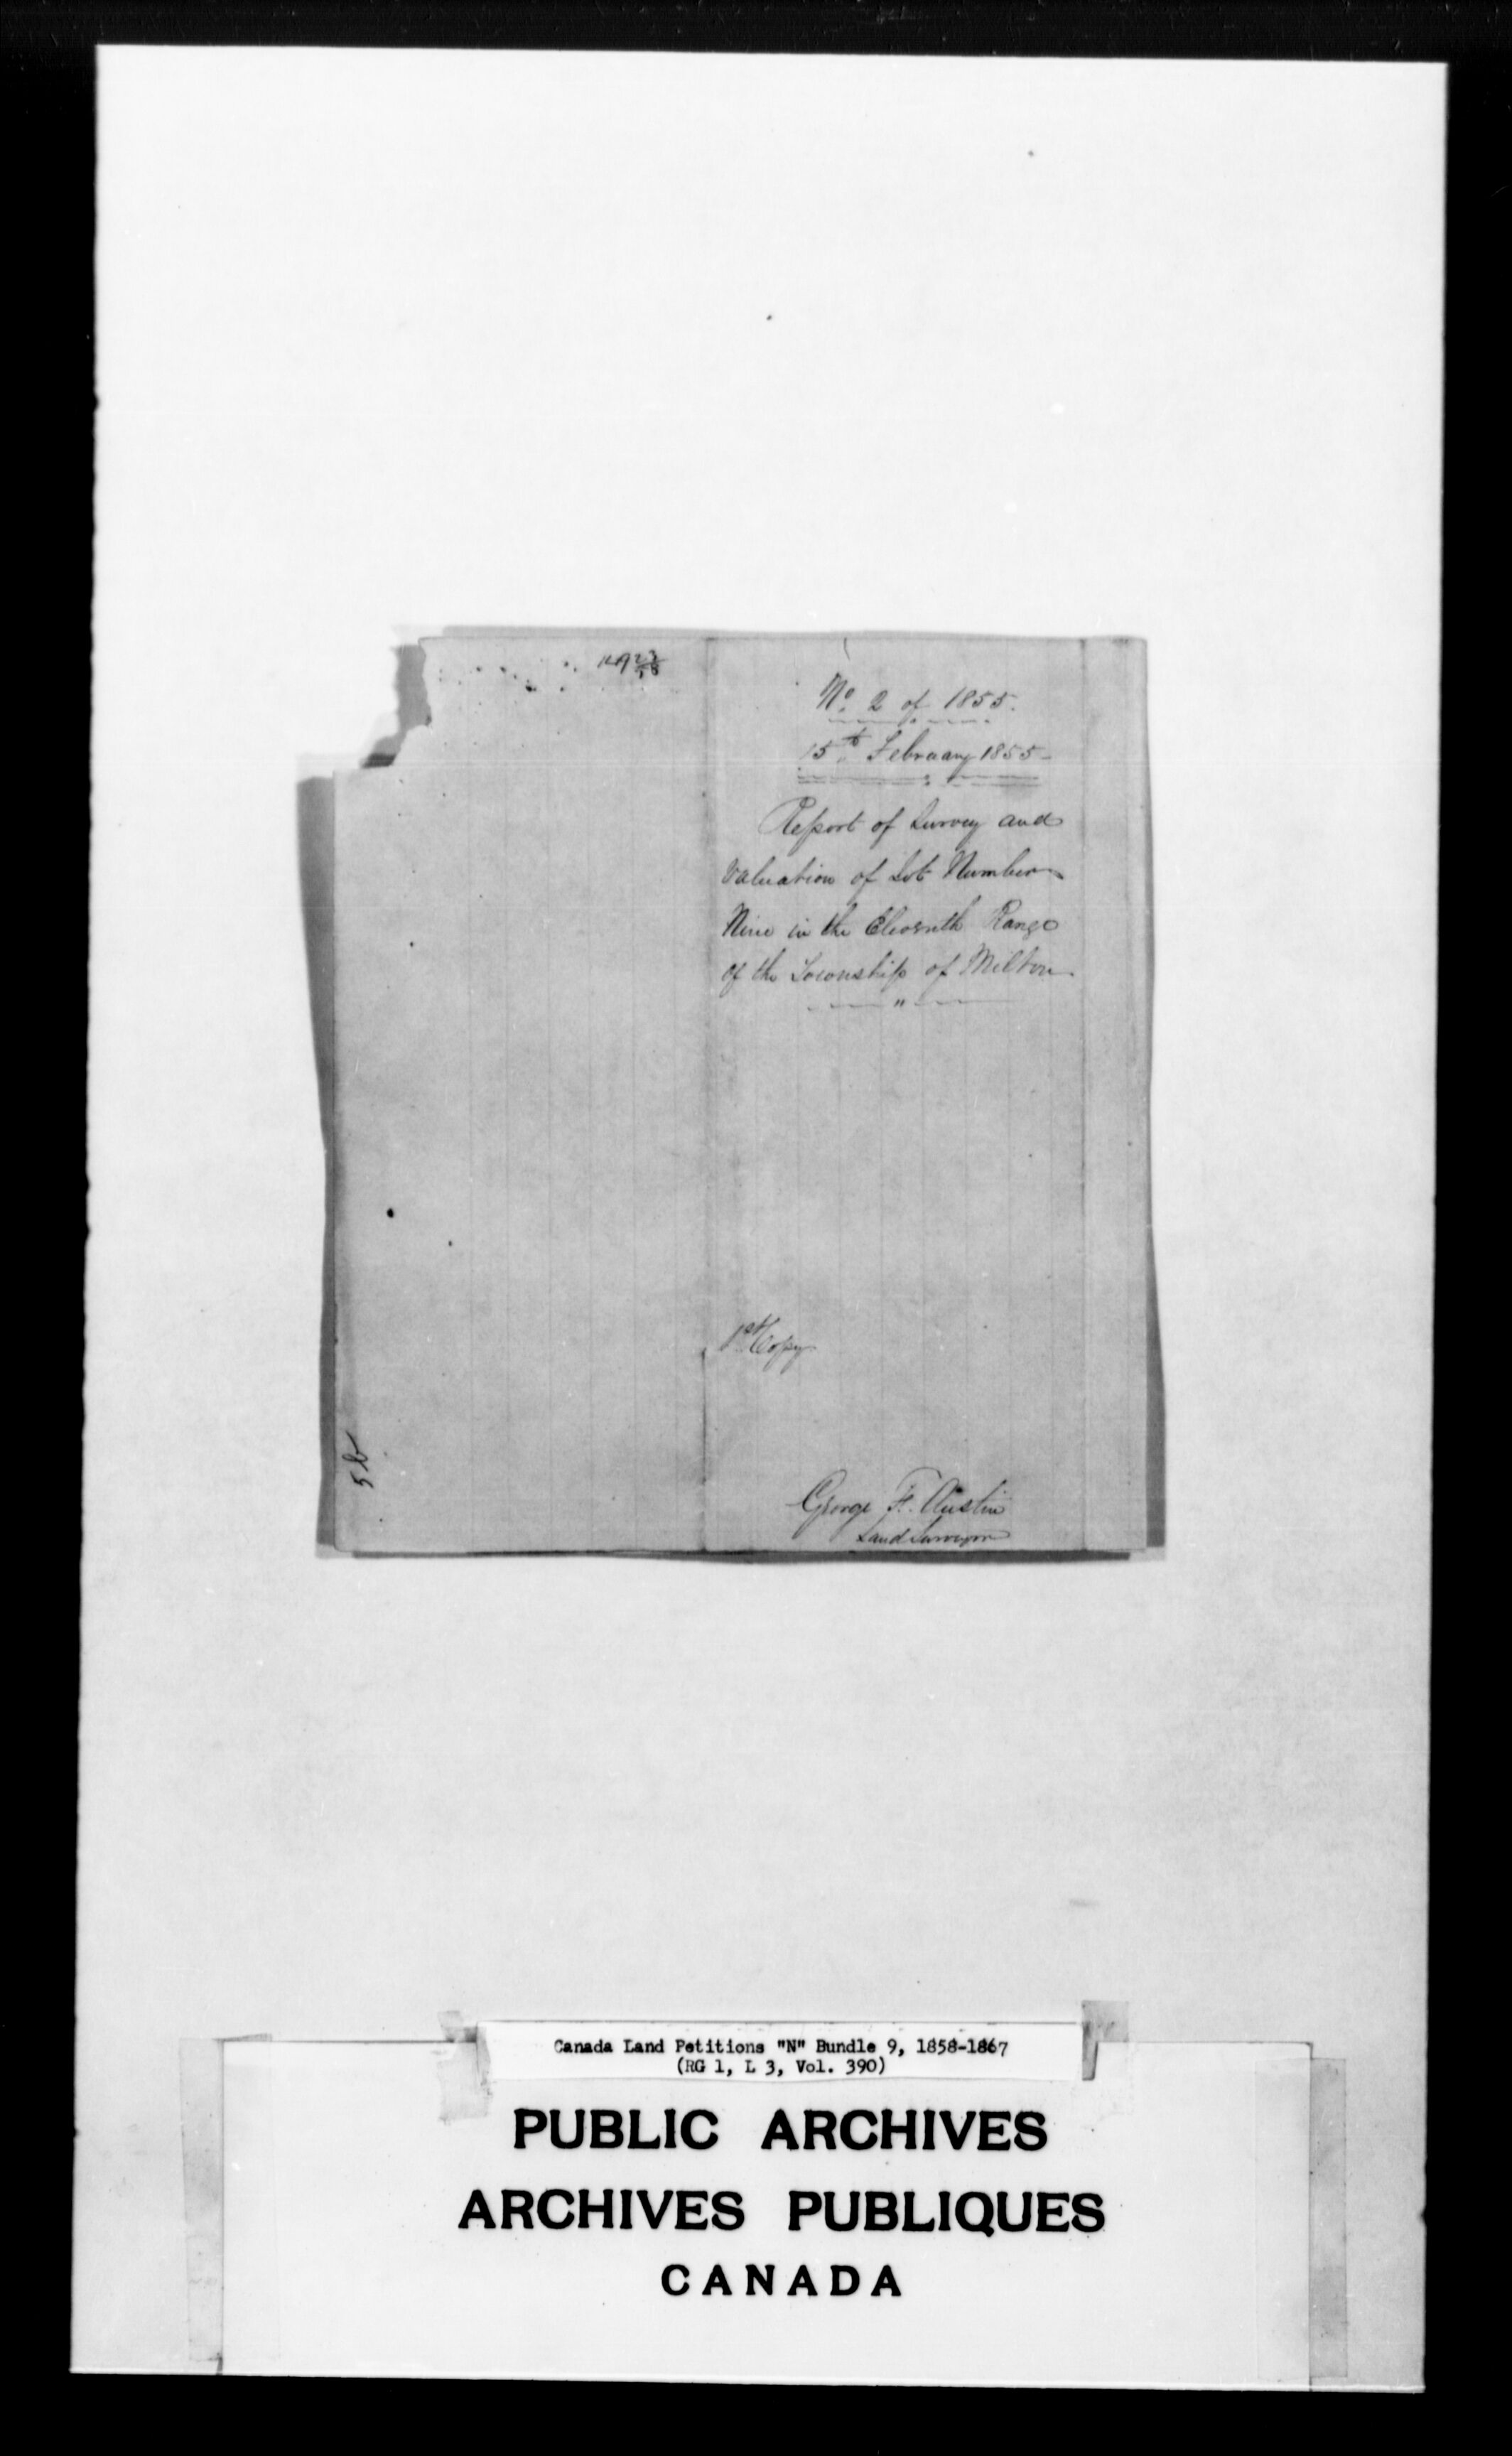 No. 2 of 1855.
15th February 1855
Report of Survey and
Valuation of Lot Number
Nine in the Eleventh Range
of the Township of Milton
1st Copy
George F. Austin
Land Surveyor
5b
Canada Land Petitions "N" Bundle 9, 1858-1867
(RG 1, L 3, Vol. 390)
PUBLIC ARCHIVES
ARCHIVES PUBLIQUES
CANADA